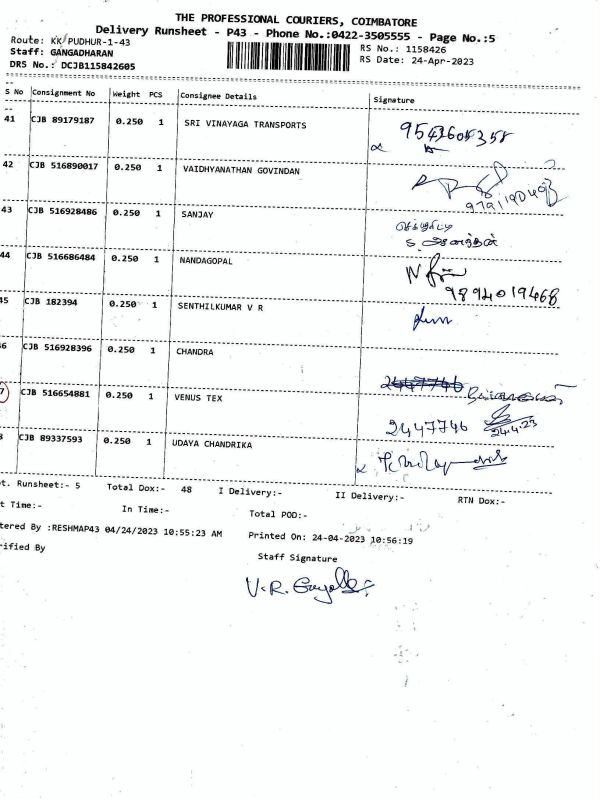 THE PROFESSIONAL COURIERS, COIMBATORE
Delivery Runsheet - P43 - Phone No.:0422-3505555 - Page No.:5
Route: KK PUDHUR-1-43 RS No.: 1158426
Staff: GANGADHARAN RS Date: 24-Apr-2023
DRS No.: DCJB115842605
S No Consignment No Weight PCS Consignee Details Signature
41 CJB 89179187 0.250 1 SRI VINAYAGA TRANSPORTS
42 CJB 516890017 0.250 1 VAIDHYANATHAN GOVINDAN
43 CJB 516928486 0.250 1 SANJAY
44 CJB 516686484 0.250 1 NANDAGOPAL
9894019468
45 CJB 182394 0.250 1 SENTHILKUMAR V R
46 CJB 516928396 0.250 1 CHANDRA
7 CJB 516654881 0.250 1 VENUS TEX
2447746 24.4.23
8 CJB 89337593 0.250 1 UDAYA CHANDRIKA
ot. Runsheet:- 5 Total Dox:- 48 I Delivery:- II Delivery:- RTN Dox:-
t Time:- In Time:- Total POD:-
tered By :RESHMAP43 04/24/2023 10:55:23 AM Printed On: 24-04-2023 10:56:19
rified By Staff Signature